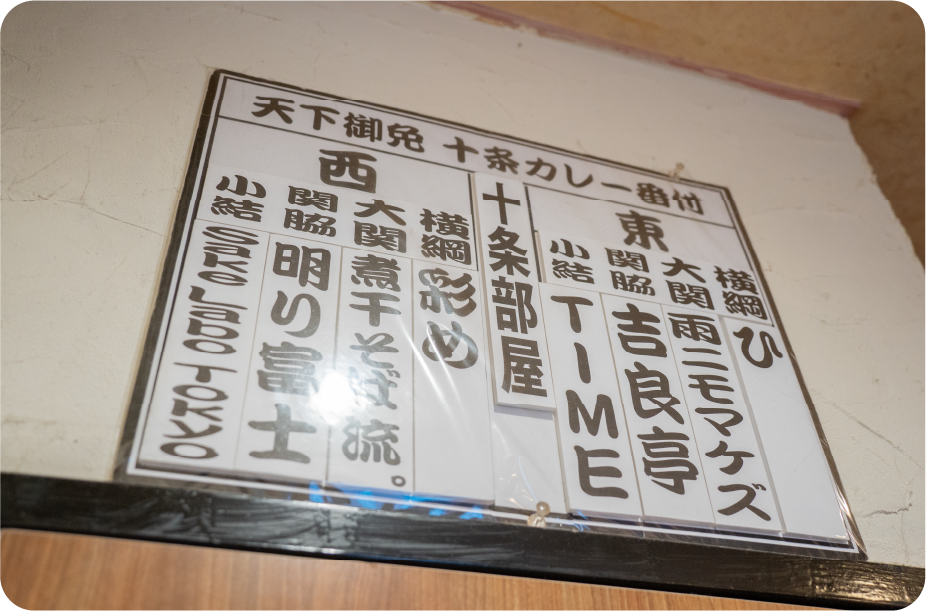 天下御免 十条カレー番付
東
横綱 ひ
大関 雨ニモマケズ
関脇 吉良亭
小結 TIME
十条部屋
西
横綱 彩め
大関 煮干そば流。
関脇 明り富士
小結 Sake Labo Tokyo